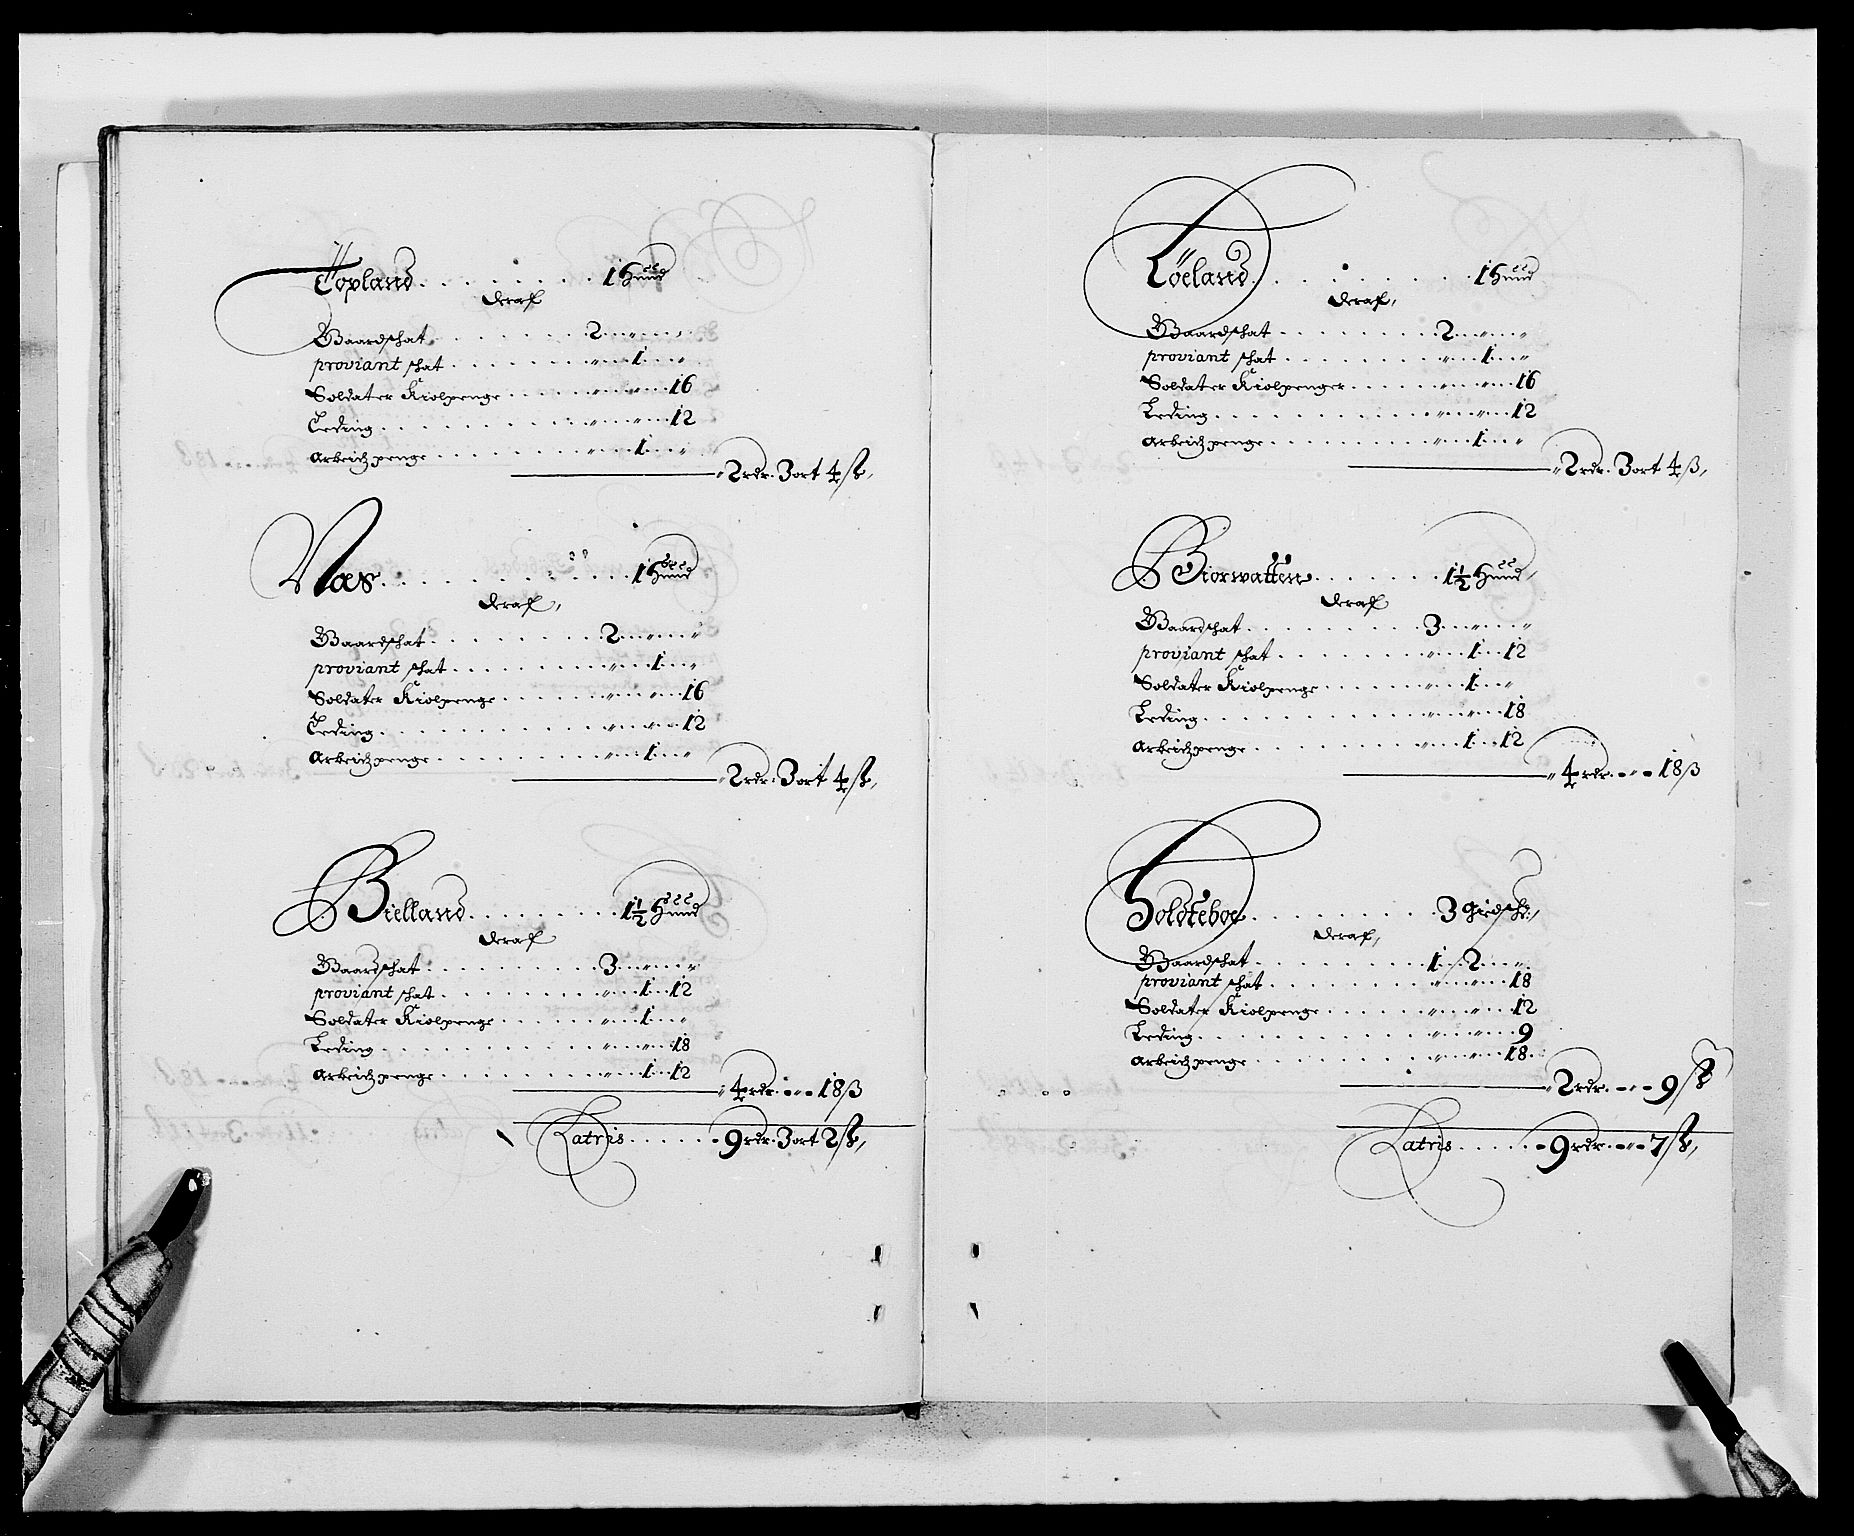 Topland . . . . . . . 1 Hund
deraf
Baardschat . . . . . . 2 „ „
proviant schat . . . . . „ 1 „
Soldater Kiolpenge . . . . „ „ 16
Leding . . . . . . . „ „ 12
Arbeidzpenge . . . . . . „ 1 „
2 rdr. 3 ort 4 ß,
Næs . . . . . . . . . 1 Hund
deraf,
Baardschat . . . . . . 2 „ „
proviant schat . . . . . „ 1 „
Soldater Kiolpenge . . . . „ „ 16
Leding . . . . . . . „ „ 12
Arbeidzpenge . . . . . . „ 1 „
2 rdr. 3 ort 4 ß,
Bielland . . . . . . . 1½ Hund
deraf
Baardschat . . . . . . 3 „ „
proviant schat . . . . . „ 1 12
Soldater Kiolpenge . . . . „ 1 „
Leding . . . . . . . „ „ 18
Arbeidzpenge . . . . . . „ 1 12
4 rdr. „ 18 ß
Latris . . . . . 9 rdr. 3 ort 2 ß,
Löeland . . . . . . . 1 Hund
deraf,
Baardschat . . . . . . 2 „ „
proviant schat . . . . . „ 1 „
Soldater Kiolpenger . . . . „ „ 16
Leding . . . . . . . „ „ 12
Arbeidzpenge . . . . . . „ 1 „
2 rdr. 3 ort 4 ß,
Biorwatten . . . . . . 1½ Hund,
deraf
Baardschat . . . . . . 3 „ „
proviant schat . . . . . „ 1 12
Soldater Kiolpenge . . . . „ 1 „
Leding . . . . . . . „ „ 18
Arbeidzpenge . . . . . . „ 1 12
4 rdr. „ 18 ß
Holdteboe . . . . . . . 3
deraf,
Baardschat . . . . . . 1 2 „
proviant schat . . . . . „ „ 18
Soldater Kiolpenge . . . . „ „ 12
Leding . . . . . . . „ „ 9
Arbeidzpenge . . . . . . „ „ 18
2 rdr. „ 9 ß
Latris . . . . . 9 rdr. „ 7 ß,